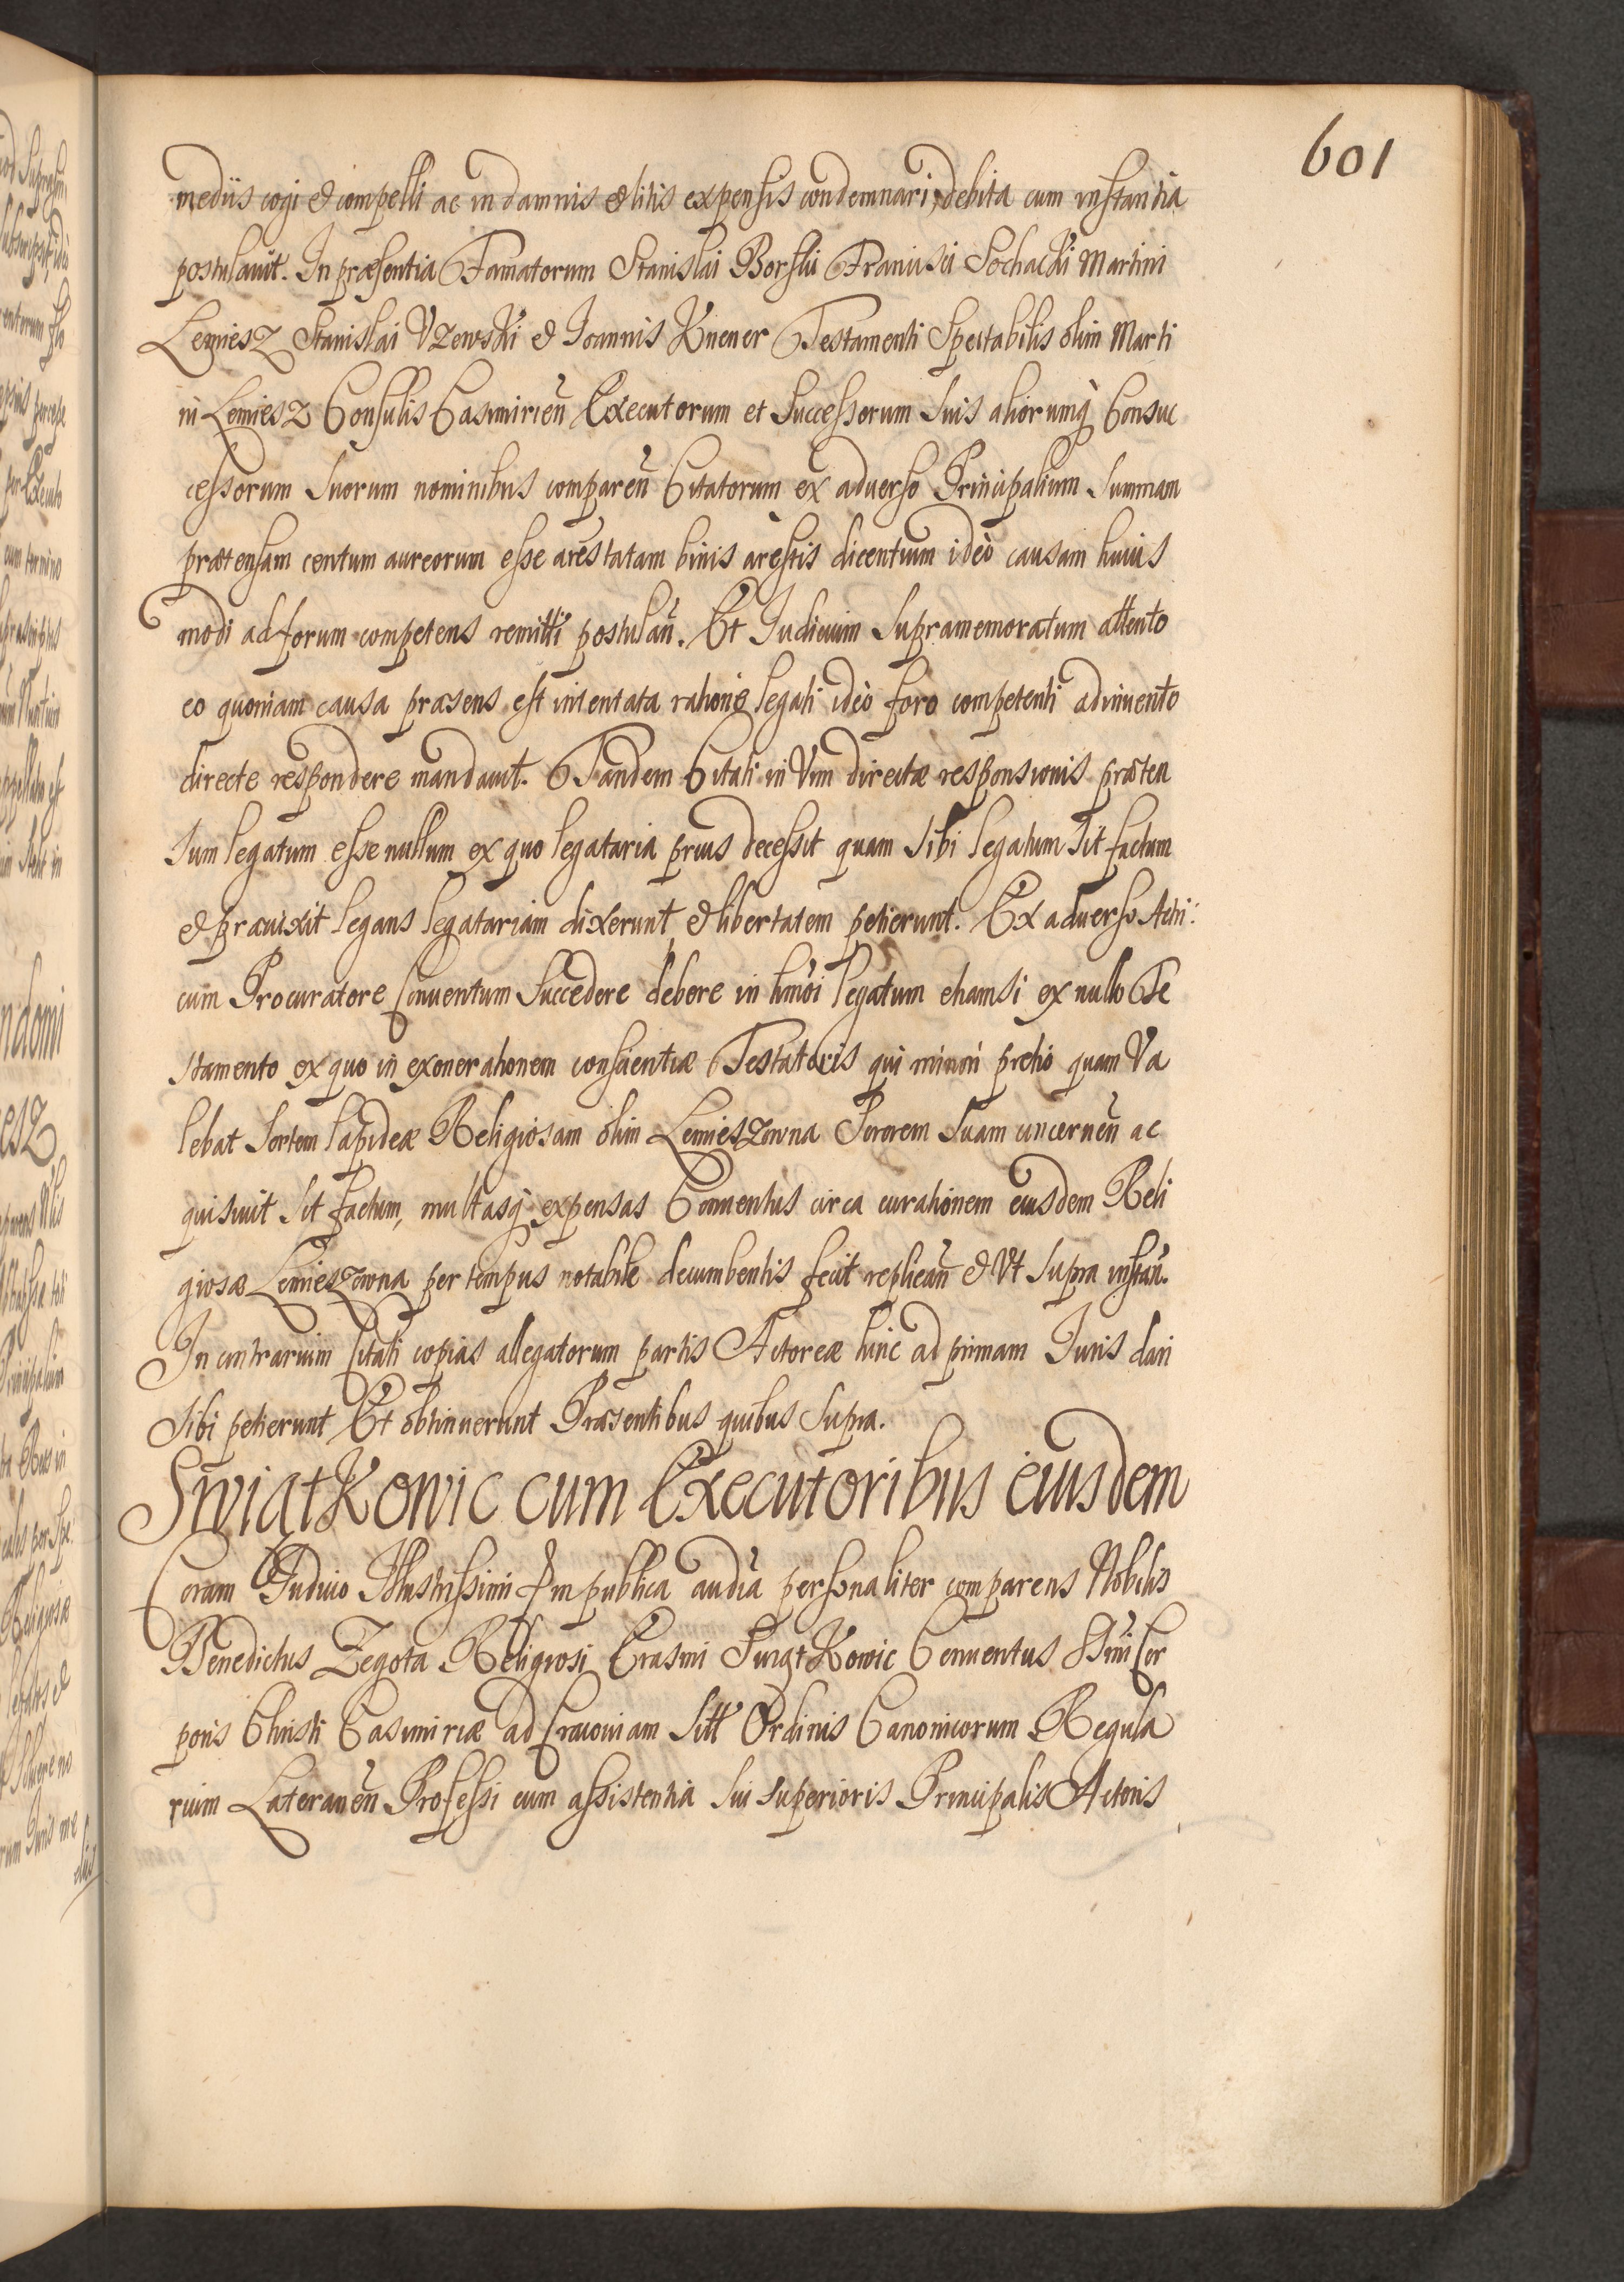 601
mediis cogi & compelli ac in damnis & litis expensis condemnari, debita cum instantia
postulauit. In præsentia Famatorum Stanislai Borslii Francisci Sochacki Martini
Lemiesz Stanislai Vzewski & Joannis Knener Testamenti Spectabilis olim Marti
ni Lemiesz Consulis Casimirien̄ Executorum et Successorum suis aliorumq̀ Consuc
cessorum suorum nominibus comparen̄ Citatorum ex aduerso Principalium summam
prætensam centum aureorum esse arestatam binis arestis dicentium ideò causam huius
modi ad forum competens remitti postulan̄. Et Iudicium supramemoratum attento
eo quoniam causa præsens est intentata ratione legati ideò foro competenti adinuento
directe respondere mandauit. Tandem Citati in Vim directæ responsionis præten
sum legatum esse nullum ex quo legataria prius decessit quam sibi legatum sit factum
& præuixit legans legatariam dixerunt & libertatem petierunt. Ex aduerso Acti:
cum Procuratore Conuentum succedere debere in hm̄oi legatum etiamsi ex nullo Te
stamento ex quo in exonerationem conscientiæ Testatoris qui minori pretio quam Va
lebat sortem lapideæ Religiosam olim Lemieszowna Sororem suam concernen̄ ac
quisiuit sit factum, multasq̀ expensas Conuentus circa curationem eiusdem Reli
giosæ Lemieszowna per tempus notabile decumbentis fecit replican̄ & Vt supra instan̄.
In contrarium Citati copias allegatorum partis Actoreæ hinc ad primam Iuris dari
sibi petierunt Et obtinuerunt Præsentibus quibus supra.
SwiatKowic cum Executoribus eiusdem
Coram Iudicio Illustrissimi in publica audīa personaliter comparens Nobilis
Benedictus Zegota Religiosi Erasmi SwiatKowic Conuentus SSm̄i Cor
poris Christi Casimiriæ ad Cracouiam sitt Ordinis Canonicorum Regula
rium Lateranen̄ Professi cum assistentia sui superioris Principalis Actoris